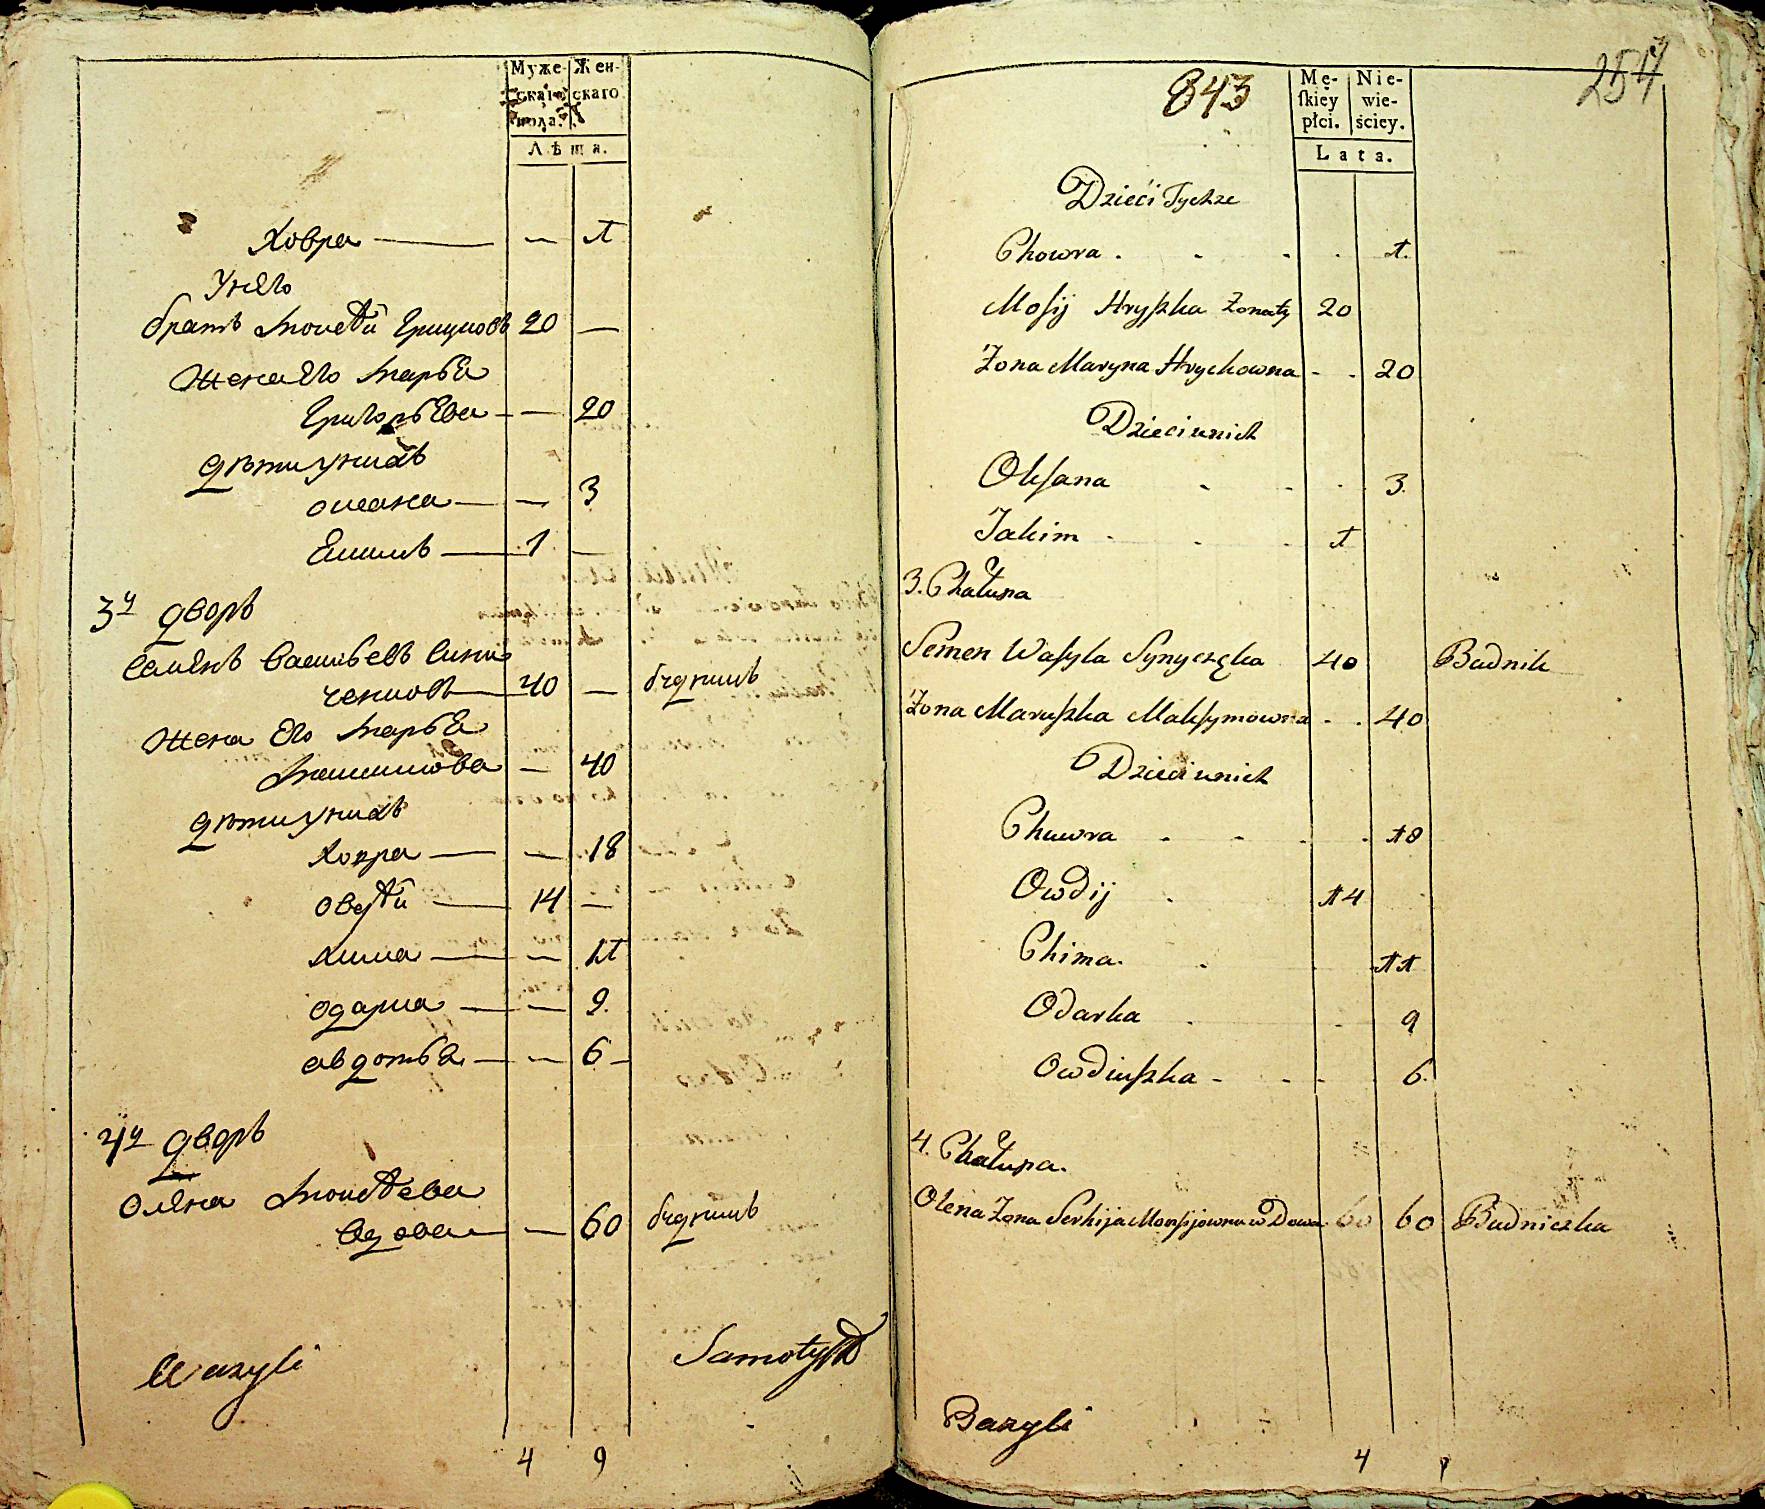 Муже-
скаго
пола.
Жен-
скаго
Лѣта.
Ховра — — 1
У него
братъ Моисей Грицковъ 20 —
жена его Марья
Григорьева — — 20
дѣти у нихъ
Оксана — — 3
Екимъ — 1 —
3й дворъ
Семенъ Васильевъ Сини-
ченковъ — 40 — будникъ
жена его Марья
Максимова — 40
дѣти у нихъ
Ховра — — 18
Овдѣй — 14 —
Хима — — 11
Одарка — — 9.
Авдотья — — 6 —
4й дворъ
Олена Моисеева
вдова — — 60 будникъ
Bazyli Samotyja
4 9
843
257
Mę-
ſkiey
płci.
Nie-
wie-
ściey.
Lata.
Dzieci Tychże
Chowra . . . . 1.
Mosij Hryszka Żonaty 20
Żona Maryna Hrychowna - . 20
Dzieci u nich
Oksana . . . 3.
Jakim . . . 1
3. Chałupa
Semen Wasyla Synyczęka 40 Budnik
Żona Maruszka Maksymowna . . 40
Dzieci u nich
Chuwra . . . . 18
Owdij . 14
Chima . . 11
Odarka . . 9
Owdiuszka - . . 6.
4. Chałupa.
Olena Żona Serhija Mousijowna wdowa 60 60 Budniczka
Bazyli
4